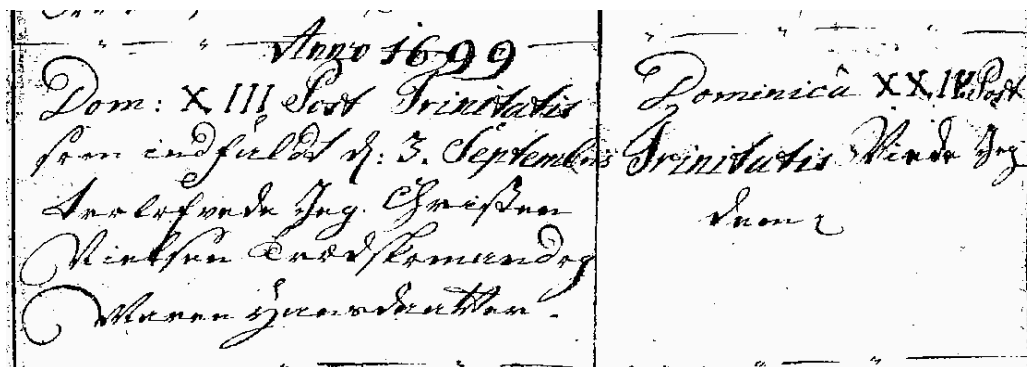 Anno 1699
Dom: XIII Post Trinitatis
som indfaldt d: 3. Septembris
trolofvede Jeg Christen
Nielsen Trædskomand og
Maren Hansdaatter.
Dominicâ XXIV Post
Trinitatis Viede Jeg
dem